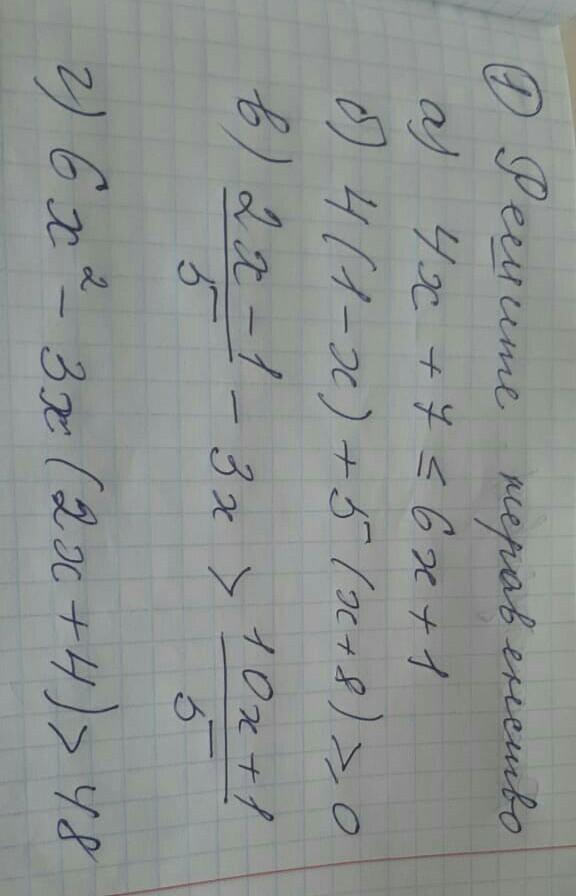 ① Решите неравенство
а) 4x + 7 ≤ 6x + 1
б) 4(1 - x) + 5(x + 8) ≥ 0
в) \frac{2x - 1}{5} - 3x > \frac{10x + 1}{5}
г) 6x² - 3x(2x + 4) > 48